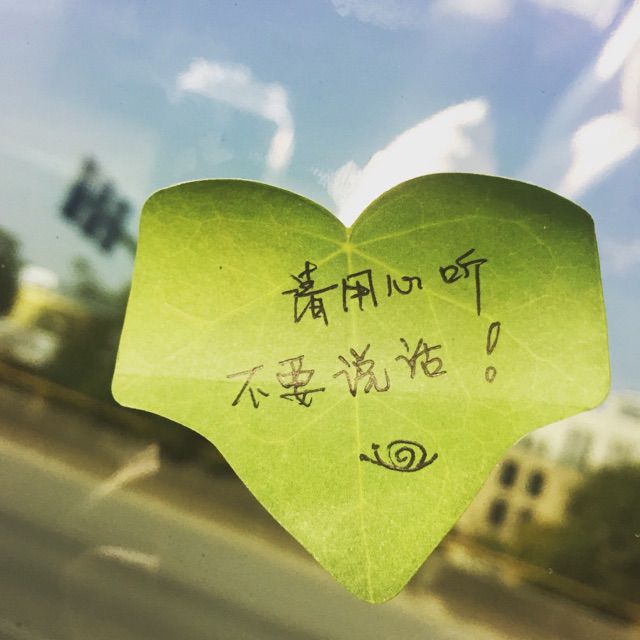 请用心听
不要说话！